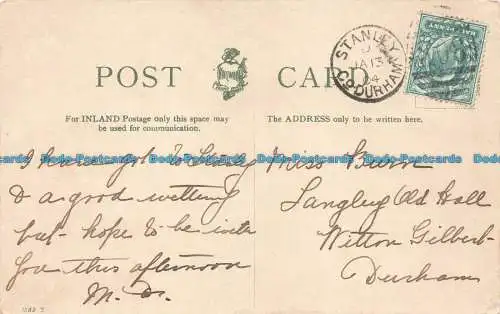 POST CARD
STANLEY
JA 13
Co. DURHAM
For INLAND Postage only this space may
be used for communication.
The ADDRESS only to be written here.
I have got to
& a good wetting
but hope to be with
you this afternoon
M. D.
Miss Burn
Langley Old Hall
Witton Gilbert
Durham
Dodo-Postcards Dodo-Postcards Dodo-Postcards Dodo-Postcards Dodo-Postcards